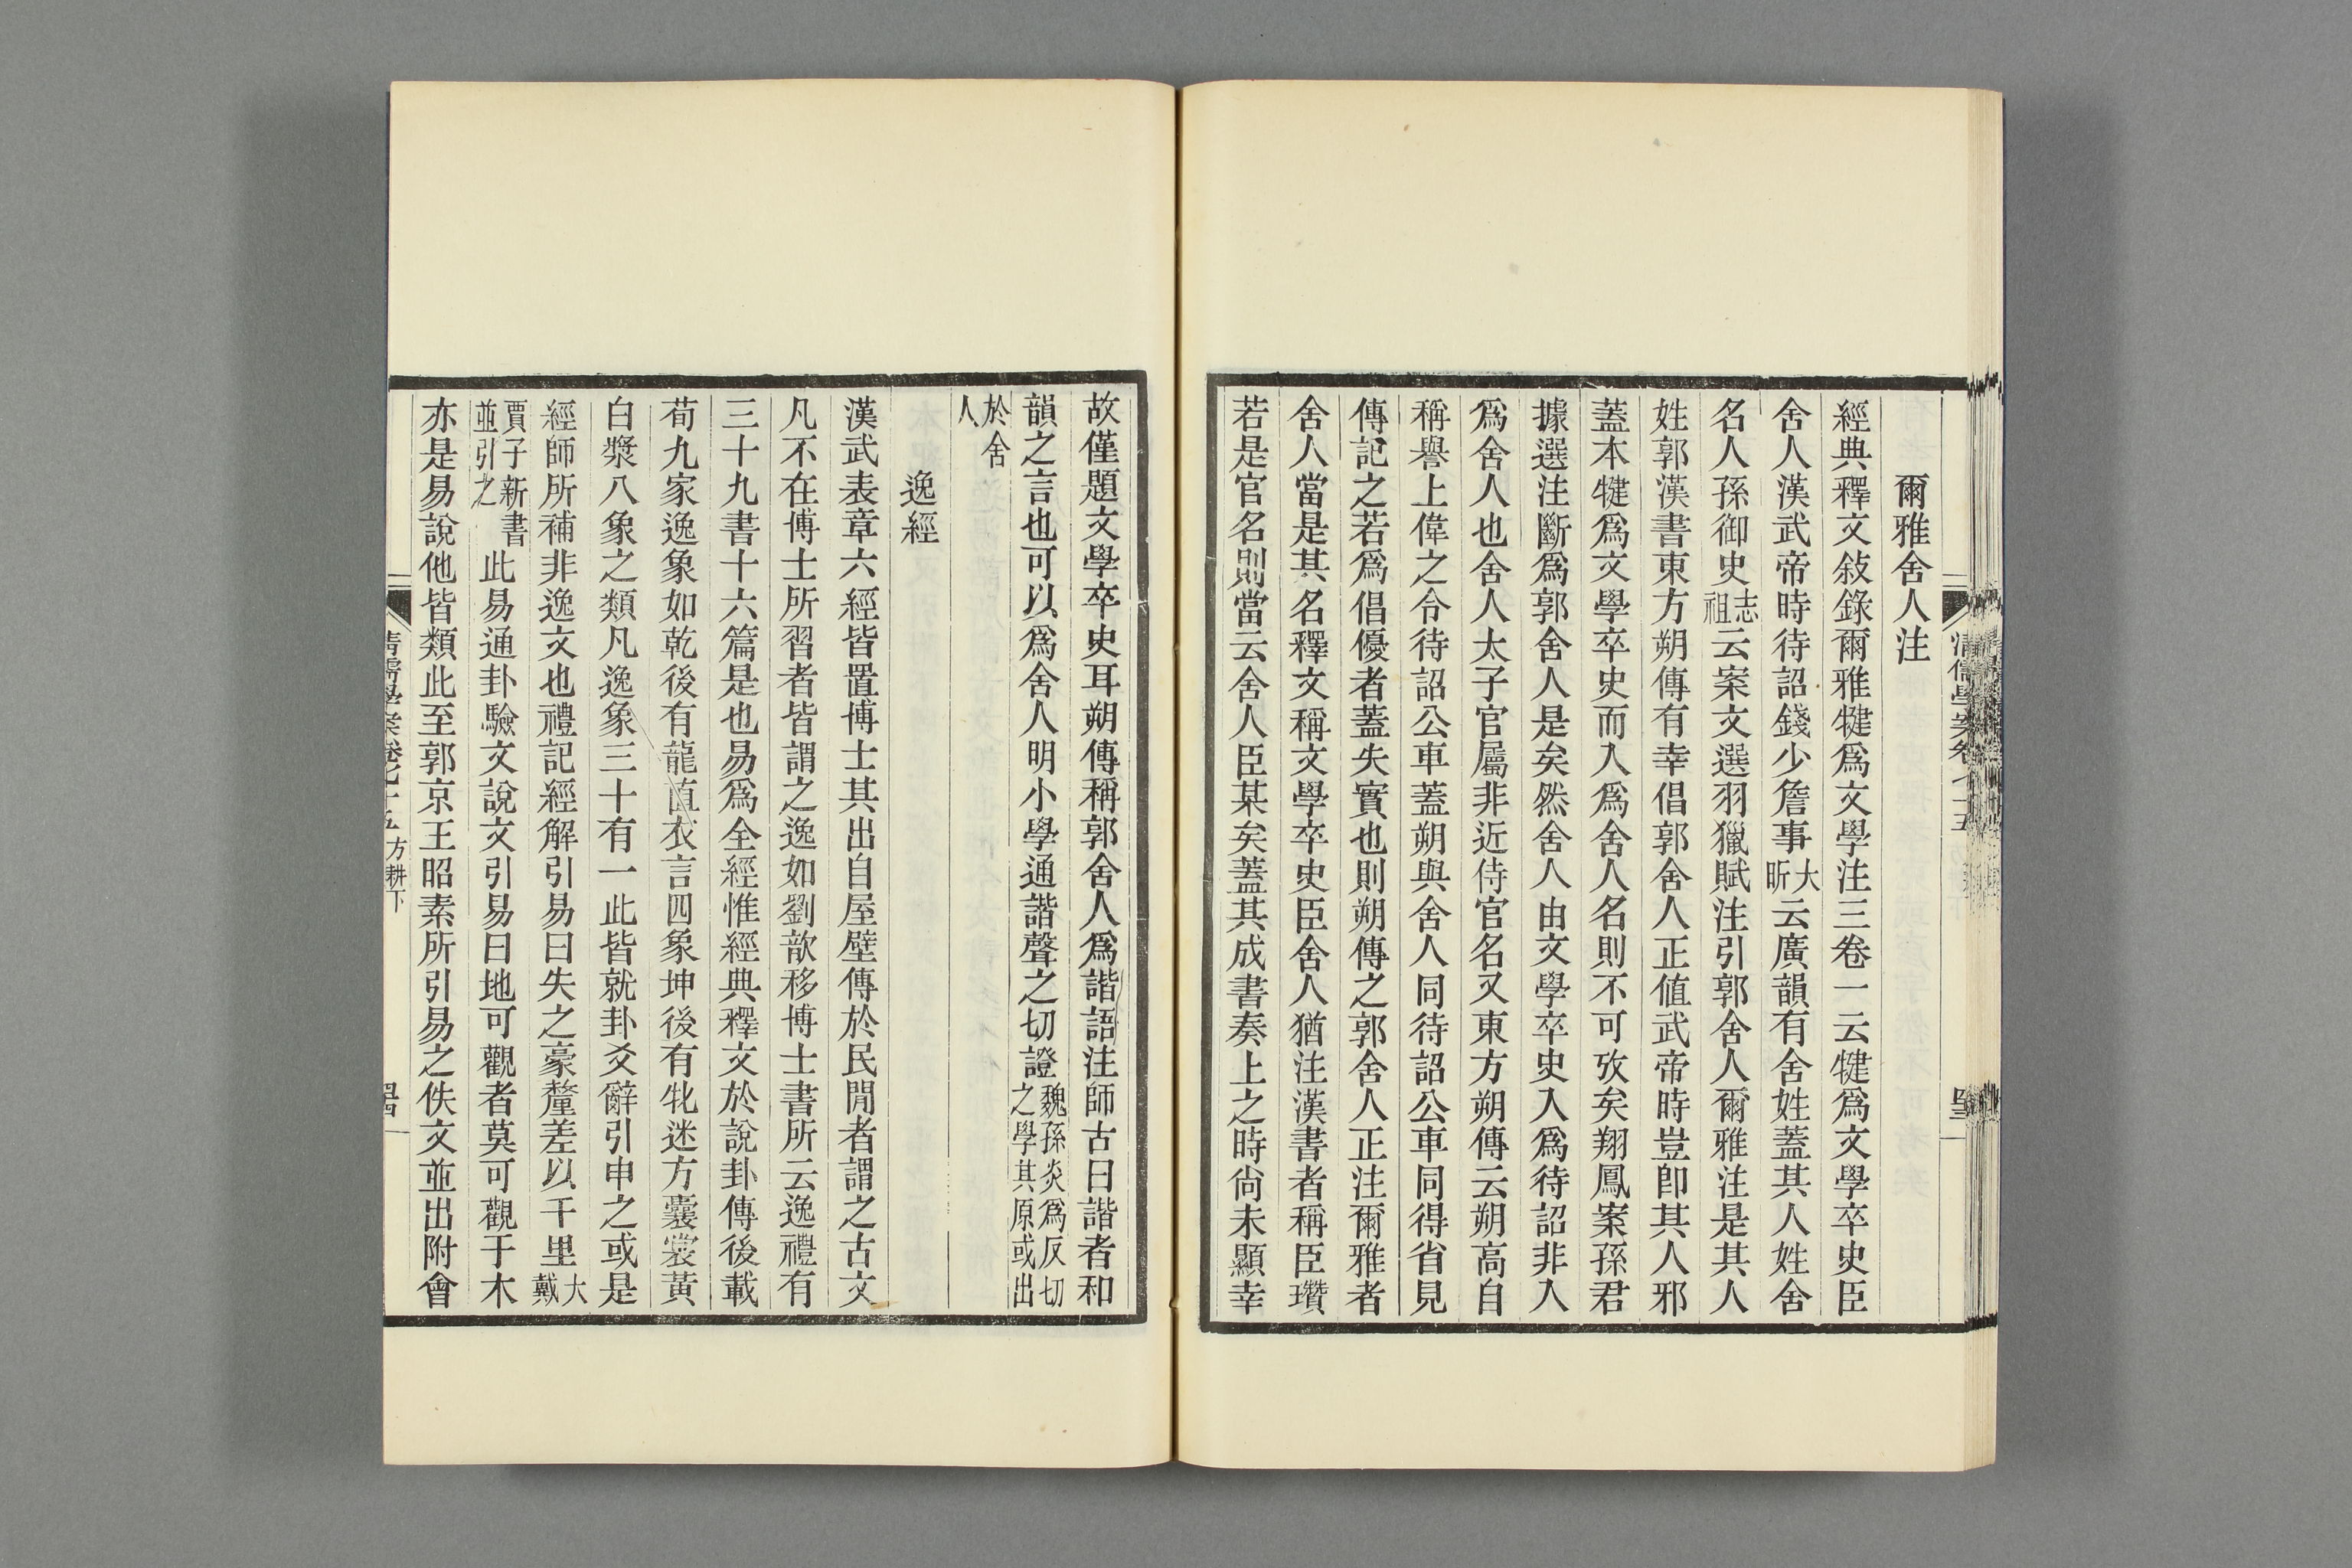 爾雅舍人注
經典釋文敍錄爾雅犍爲文學注三卷一云犍爲文學卒史臣
舍人漢武帝時待詔錢少詹事大昕云廣韻有舍姓蓋其人姓舍
名人孫御史志祖云案文選羽獵賦注引郭舍人爾雅注是其人
姓郭漢書東方朔傳有幸倡郭舍人正值武帝時豈卽其人邪
蓋本犍爲文學卒史而入爲舍人名則不可攷矣翔鳳案孫君
據選注斷爲郭舍人是矣然舍人由文學卒史入爲待詔非入
爲舍人也舍人太子官屬非近侍官名又東方朔傳云朔高自
稱譽上偉之令待詔公車蓋朔與舍人同待詔公車同得省見
傳記之若爲倡優者蓋失實也則朔傳之郭舍人正注爾雅者
舍人當是其名釋文稱文學卒史臣舍人猶注漢書者稱臣瓚
若是官名則當云舍人臣某矣蓋其成書奏上之時尙未顯幸
故僅題文學卒史耳朔傳稱郭舍人爲諧語注師古曰諧者和
韻之言也可以爲舍人明小學通諧聲之切證魏孫炎爲反切之學其原或出
於舍人
逸經
漢武表章六經皆置博士其出自屋壁傳於民閒者謂之古文
凡不在博士所習者皆謂之逸如劉歆移博士書所云逸禮有
三十九書十六篇是也易爲全經惟經典釋文於說卦傳後載
荀九家逸象如乾後有龍直衣言四象坤後有牝迷方囊裳黃
白漿八象之類凡逸象三十有一此皆就卦爻辭引申之或是
經師所補非逸文也禮記經解引易曰失之豪釐差以千里大戴
賈子新書並引之此易通卦驗文說文引易曰地可觀者莫可觀于木
亦是易說他皆類此至郭京王昭素所引易之佚文並出附會
清儒學案卷七十五 方耕下
四十四